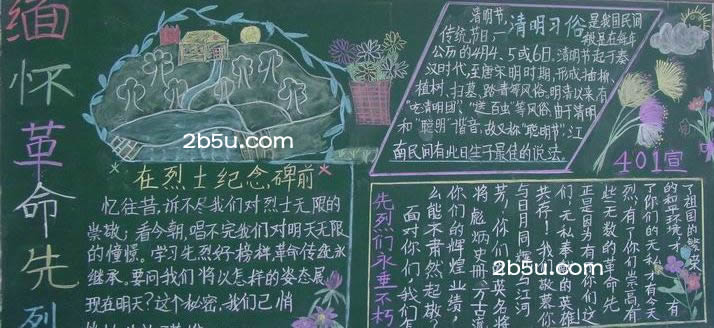 缅怀革命先烈
2b5u.com
在烈士纪念碑前
忆往昔,诉不尽我们对烈士无限的
崇敬;看今朝,唱不完我们对明天无限
的憧憬。学习先烈好榜样革命传统永
继承。要问我们将以怎样的姿态展
现在明天?这个秘密,我们已悄
清明节,
传统节日一
清明习俗
是我国民间
公历的4月4、5或6日。清明节起于秦
汉时代,至唐宋明时期,形成插柳、
植树、扫墓、踏青等风俗,明清以来有
"吃清明团"、"送百虫"等风俗,由于清明
和"聪明"谐音,故又称"聪明节"。江
南民间有此日生于最佳的说法。
401宣
了祖国的繁荣
的和平环境。
了你们的无私
烈,有了你们崇高
些无数的革命先
正是因为有你们这
们,无私奉
共存!我
与日月同辉与江河
芳,你们的英名将
将彪炳史册,万古流
你们的辉煌业绩,
么能不肃然起敬?
面对你们,我们怎
先烈们永垂不朽
2b5u.com